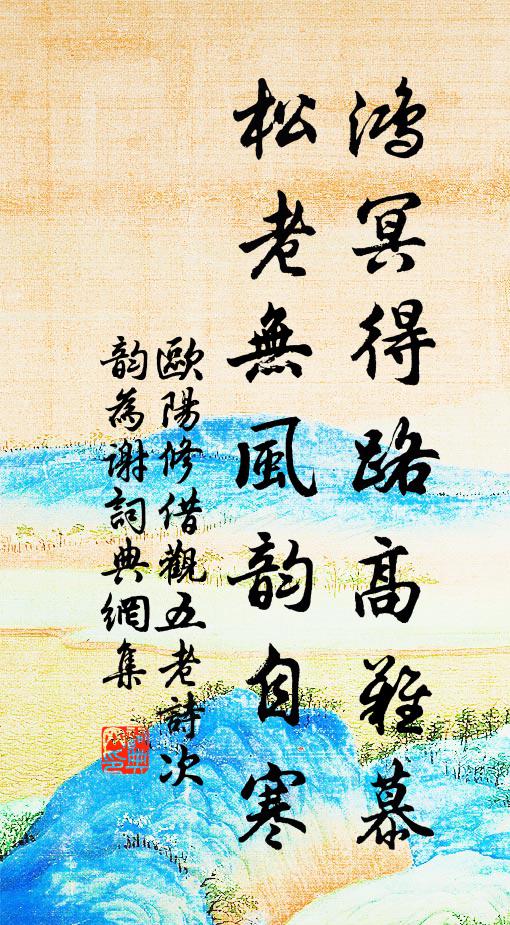 鴻冥得路高難慕
松老無風韵自寒
歐陽修借觀五老詩次
韵為谢詞典網集